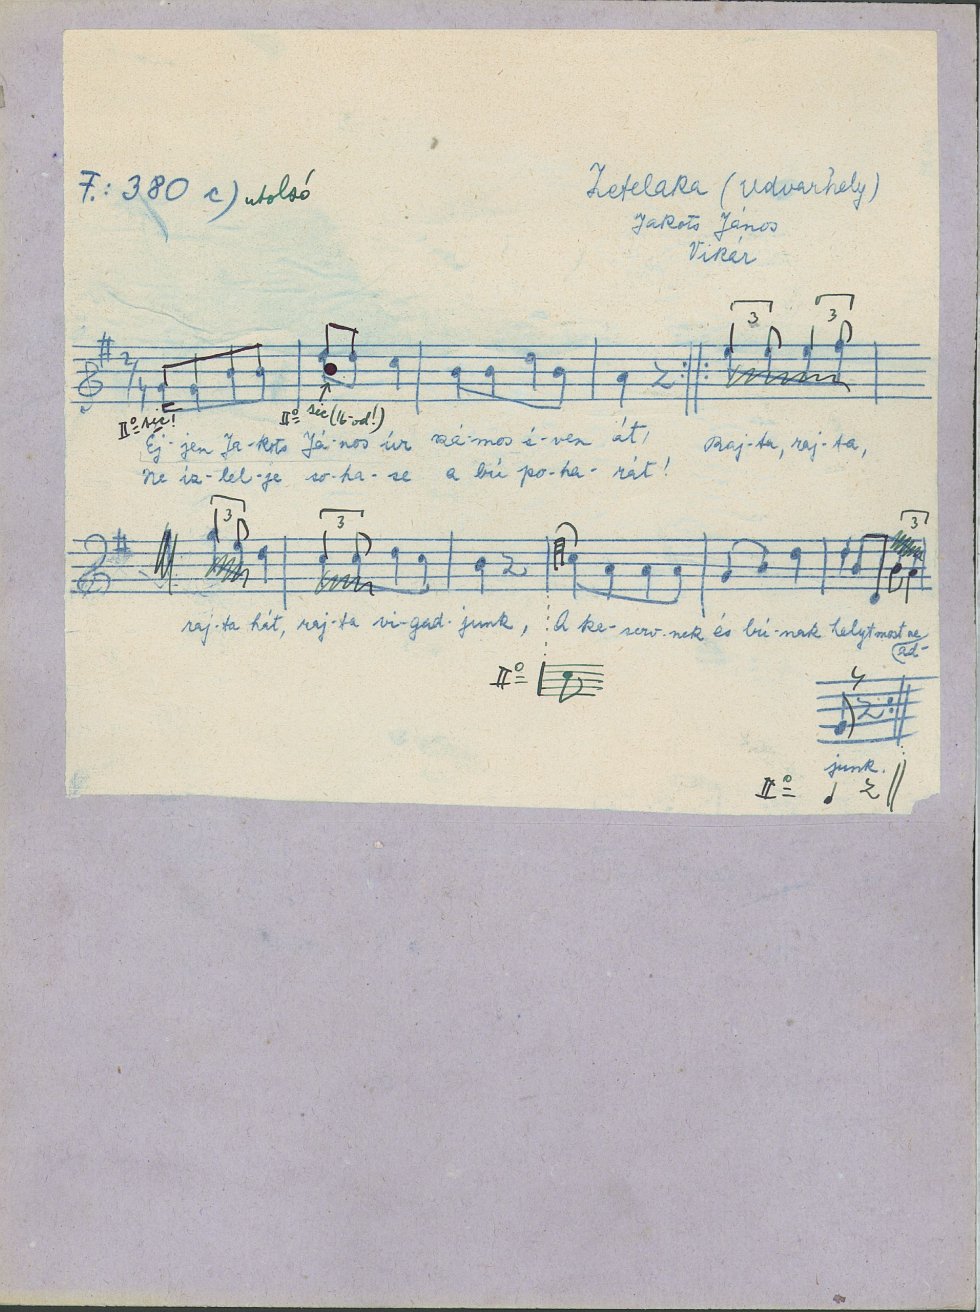 F.: 380 c) utolsó
Zetelaka (Udvarhely)
Jakots János
Vikár
2/4
3 3
IIº sic!
IIº sic (16-od!)
Éj-jen Ja-kots Já-nos úr szá-mos é-ven át! Raj-ta, raj-ta,
Ne íz-lel-je so-ha-se a bú po-ha-rát!
3 3 3
raj-ta hát, raj-ta vi-gad-junk, A ke-serv-nek és bú-nak helyt most ne
ad-
IIº
junk.
IIº